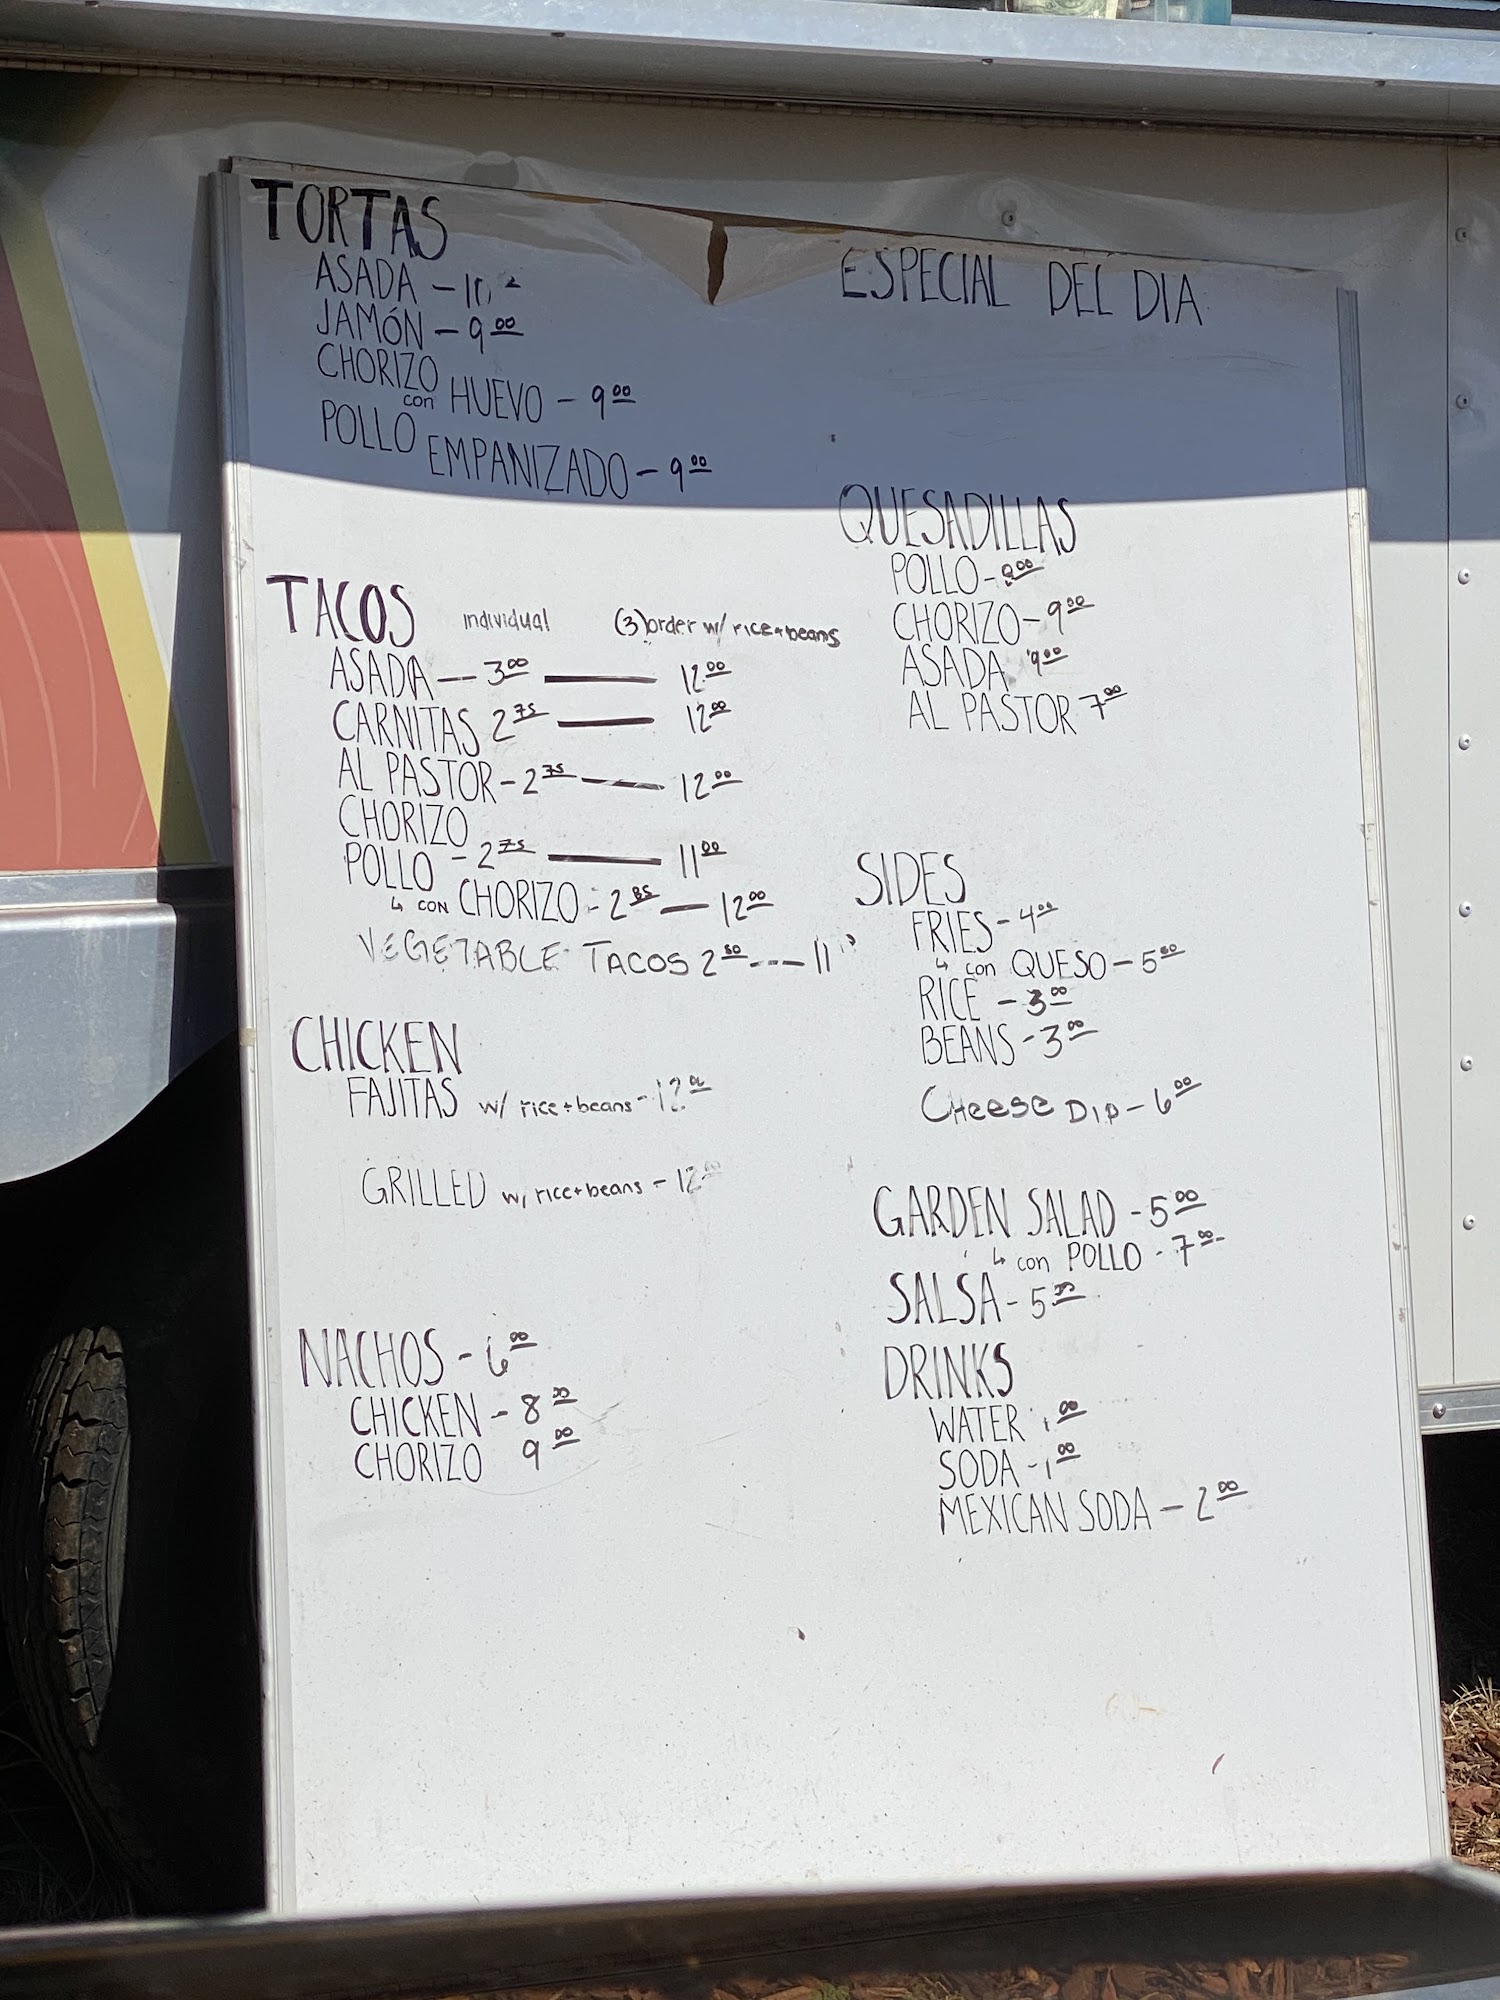 TORTAS
ASADA -
JAMÓN - 9.00
CHORIZO
con HUEVO - 9.00
POLLO
EMPANIZADO - 9.00
TACOS individual (3) order w/ rice + beans
ASADA — 3.00 — 12.00
CARNITAS 2.75 — 12.00
AL PASTOR - 2.75 — 12.00
CHORIZO
POLLO - 2.75 — 11.00
↳ CON CHORIZO - 2.85 — 12.00
VEGETABLE TACOS 2.50 --- 11
CHICKEN
FAJITAS w/ rice + beans - 12.00
GRILLED w/ rice + beans - 12.00
NACHOS - 6.00
CHICKEN - 8.00
CHORIZO 9.00
ESPECIAL DEL DIA
QUESADILLAS
POLLO -
CHORIZO - 9.00
ASADA 9.00
AL PASTOR 7.00
SIDES
FRIES - 4.00
↳ con QUESO - 5.50
RICE - 3.00
BEANS - 3.00
CHeese DIP - 6.00
GARDEN SALAD - 5.00
↳ con POLLO - 7.00
SALSA - 5.00
DRINKS
WATER 1.00
SODA - 1.00
MEXICAN SODA - 2.00